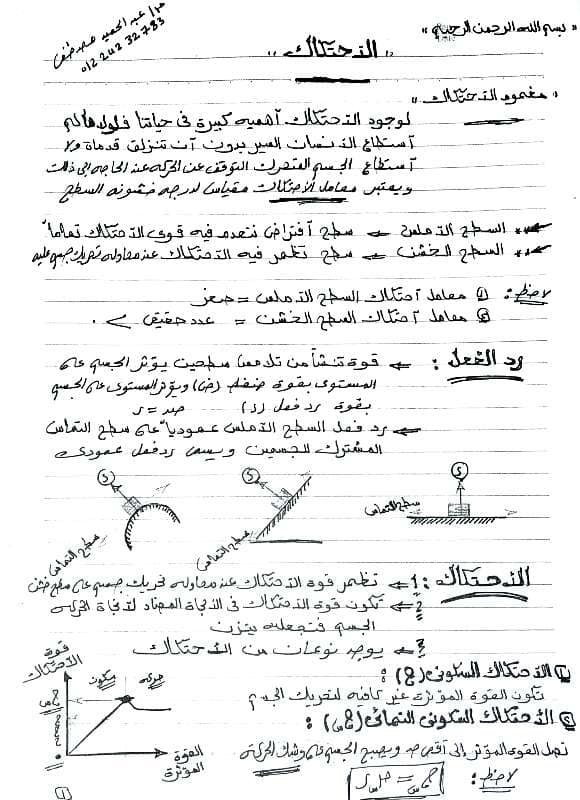 بسم الله الرحمن الرحيم
م/ عبد الحميد مصطفى
01224232783
"الاحتكاك"
"مفهوم الاحتكاك"
لوجود الاحتكاك أهمية كبيرة فى حياتنا فلولاه لم
أستطاع الانسان السير بدون أن تنزلق قدماه ولا
أستطاع الجسم المتحرك التوقف عن الحركة عند الحاجه الى ذلك
ويعتبر معامل الاحتكاك مقياس لدرجه خشونه السطح
السطح الاملس ← سطح أفتراضى تنعدم فيه قوى الاحتكاك تماماً
السطح الخشن ← سطح تظهر فيه الاحتكاك عند محاوله تحريك جسم عليه
لاحظ: ① معامل أحتكاك السطح الاملس = صفر
② معامل أحتكاك السطح الخشن = عدد حقيقى > ٠
رد الفعل: ← قوة تنشأ من تلامس سطحين يؤثر الجسم على
المستوى بقوة ضغط (ض) ويؤثر المستوى على الجسم
بقوة رد فعل (ر) ض = ر
← رد فعل السطح الاملس عمودياً على سطح التماس
المشترك للجسمين ويسمى رد فعل عمودى
ر
ر
ر
سطح التماس
سطح التماس
سطح التماس
الاحتكاك: 1← تظهر قوة الاحتكاك عند محاوله تحريك جسم على سطح خشن
2← تكون قوة الاحتكاك فى الاتجاة المضاد لاتجاة الحركه
الجسم فتجعله يتزن
3← يوجد نوعان من الاحتكاك
① الاحتكاك السكونى (ح):
تكون القوة المؤثرة غير كافيه لتحريك الجسم
② الاحتكاك السكونى النهائى (حس):
تصل القوه المؤثر إلى أقصى حد ويصبح الجسم على وشك الحركة
لاحظ: حس = مس ر
قوة
الاحتكاك
سكون
حركه
حس
القوة
المؤثرة
١